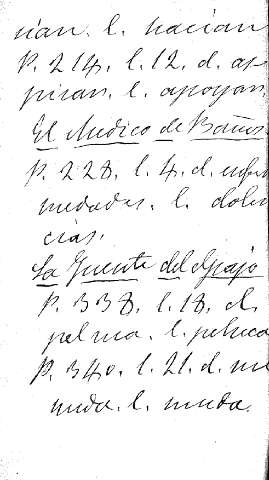 rian. l. hacian
P. 214. l. 12. d. as
piran. l. apoyan.
El Medico de Baños
P. 228. l. 4. d. enfer
medades. l. dolen
cias.
La Fuente del Grajo
P. 338. l. 18. d.
pelma. l. peluca
P. 340. l. 21. d. me
nuda. l. muda.